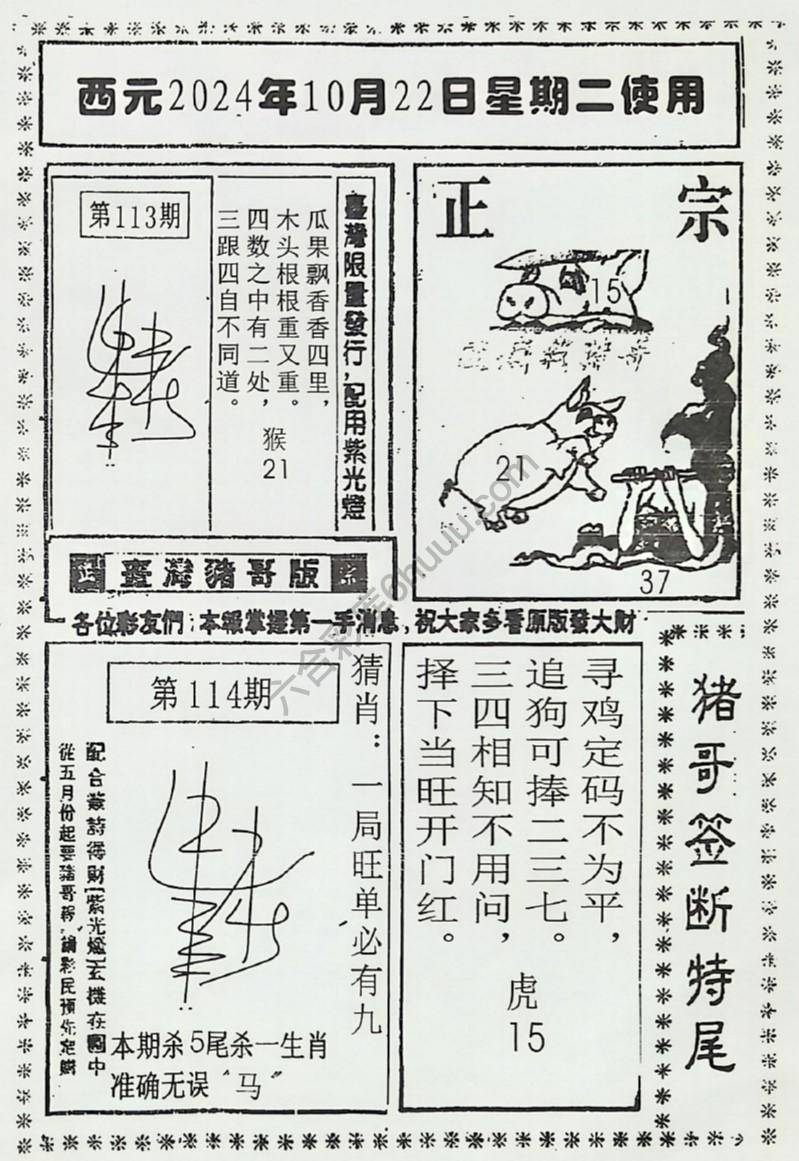 西元2024年10月22日星期二使用
第113期
臺灣限量發行,配用紫光燈
瓜果飘香香四里,
木头根根重又重。
四数之中有二处,
三跟四自不同道。
猴
21
正宗
15
21
37
正 臺灣豬哥版 宗
各位彩友們:本報掌握第一手消息,祝大家多看原版發大財
第114期
猜肖:一局旺单必有九
從五月份起要豬哥報
本期杀5尾杀一生肖
准确无误“马”
寻鸡定码不为平,
追狗可捧二三七。
三四相知不用问,
择下当旺开门红。
虎
15
猪哥签断特尾
六合彩库6huuu.com